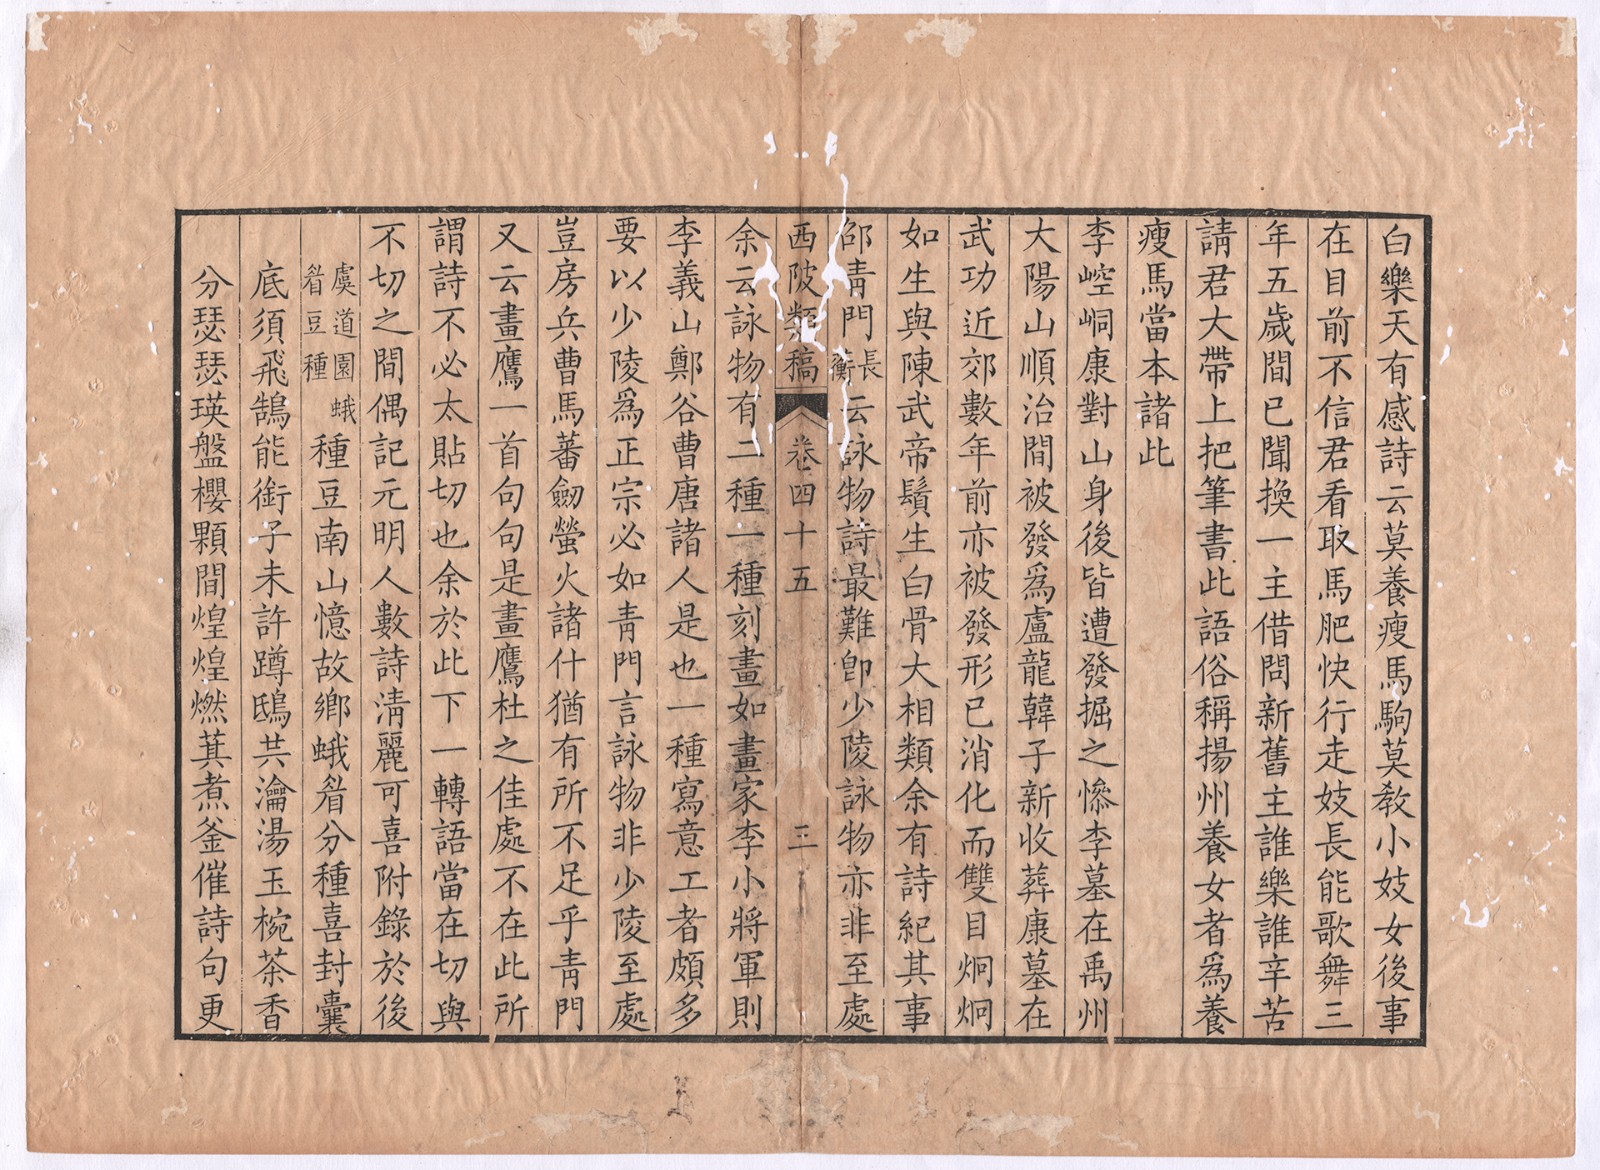 白樂天有感詩云莫養瘦馬駒莫敎小妓女後事
在目前不信君看取馬肥快行走妓長能歌舞三
年五歲間已聞換一主借問新舊主誰樂誰辛苦
請君大帶上把筆書此語俗稱揚州養女者爲養
瘦馬當本諸此
李崆峒康對山身後皆遭發掘之慘李墓在禹州
大陽山順治間被發爲盧龍韓子新收葬康墓在
武功近郊數年前亦被發形已消化而雙目炯炯
如生與陳武帝鬚生白骨大相類余有詩紀其事
邵青門長衡云詠物詩最難卽少陵詠物亦非至處
西陂類稿 卷四十五 三
余云詠物有二種一種刻畫如畫家李小將軍則
李義山鄭谷曹唐諸人是也一種寫意工者頗多
要以少陵爲正宗必如青門言詠物非少陵至處
豈房兵曹馬蕃劒螢火諸什猶有所不足乎青門
又云畫鷹一首句句是畫鷹杜之佳處不在此所
謂詩不必太貼切也余於此下一轉語當在切與
不切之間偶記元明人數詩淸麗可喜附錄於後
虞道園蛾眉豆種種豆南山憶故鄉蛾眉分種喜封囊
底須飛鵠能銜子未許蹲鴟共瀹湯玉椀茶香
分瑟瑟瑛盤櫻顆間煌煌燃萁煮釜催詩句更